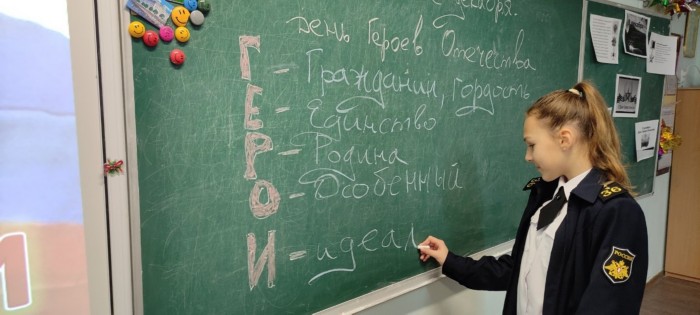 декабря.
День Героев Отечества
Г - Гражданин, гордость
Е - Единство
Р - Родина
О - Особенный
И - идеал
36
РОССИЯ